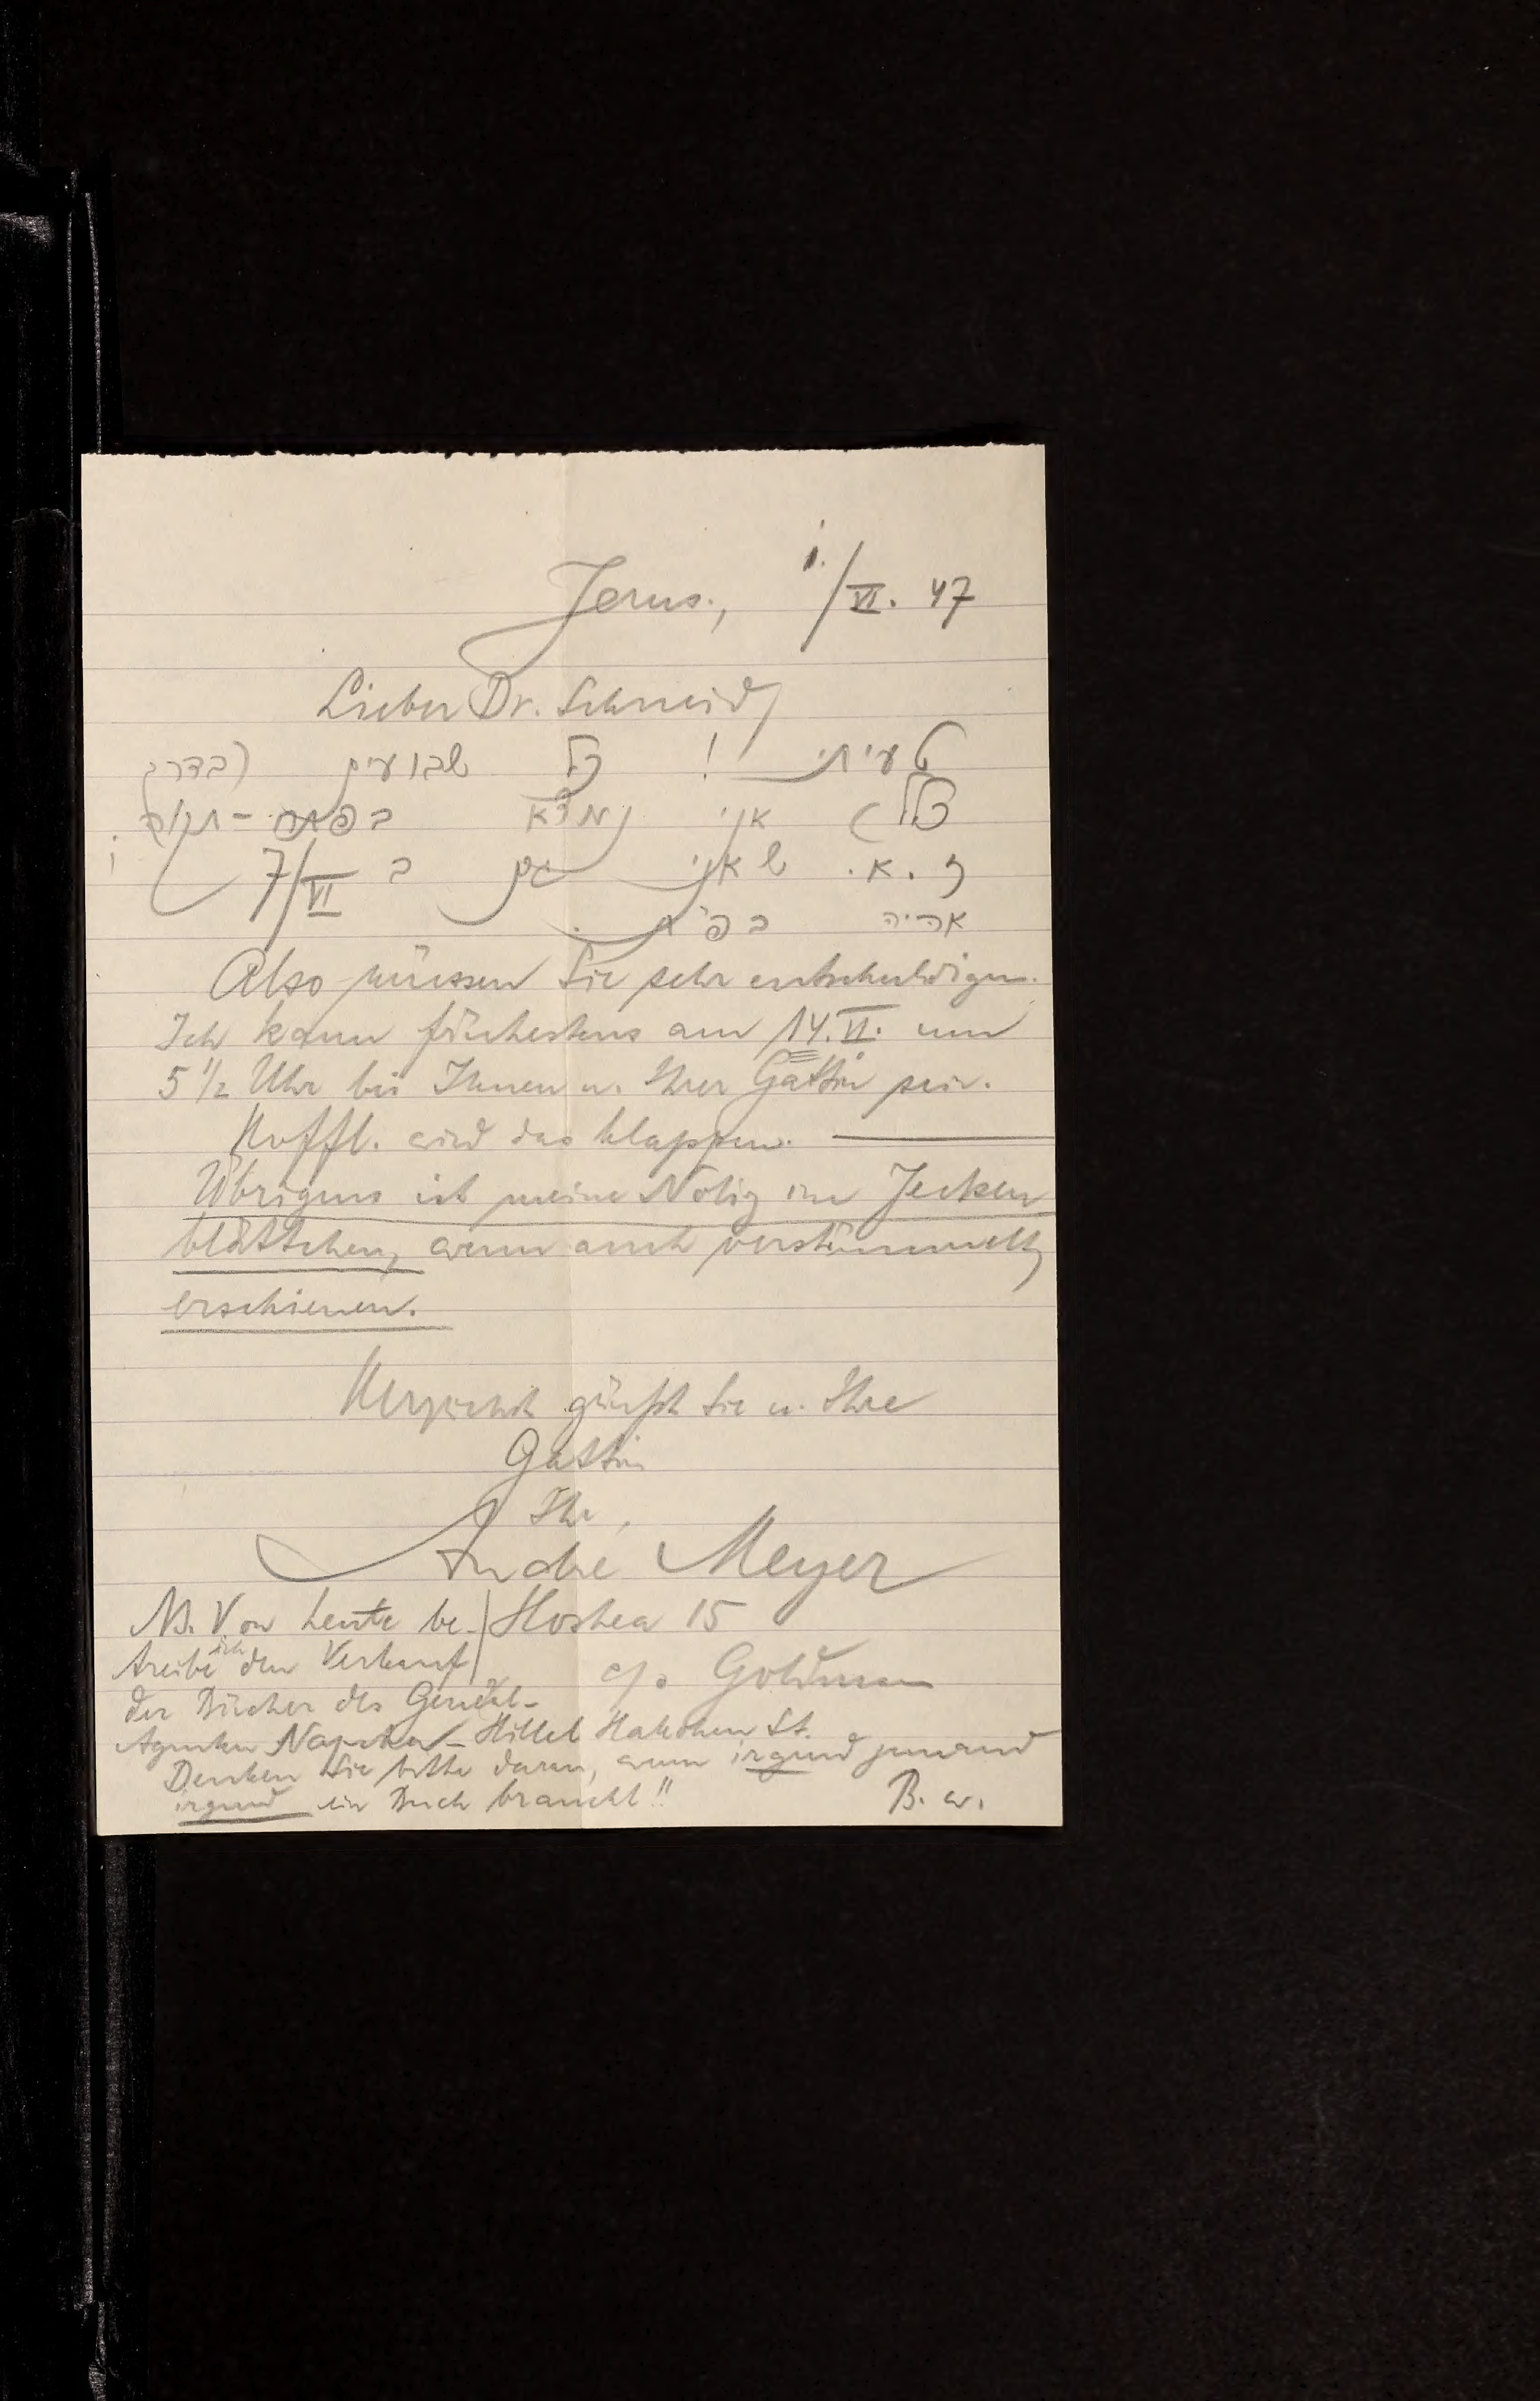 Jerus., 1./VI. 47
Lieber Dr. Schneid,
טעיתי! כל שבועיים (בדרך
כלל) אני נמצא בפתח-תקוה.
ז.א. שאני גם ב 7/VI
אהיה בפ"ת.
Also müssen Sie sehr entschuldigen.
Ich kann frühestens am 14.VI. um
5 1/2 Uhr bei Ihnen u. Ihrer Gattin sein.
Hoffl. wird das klappen. —
Übrigens ist meine Notiz im Jecken
blättchen, wenn auch verstümmelt,
erschienen.
Herzlichst grüsst Sie u. Ihre
Gattin
Ihr,
Andre Meyer
Hoshea 15
c/o Goldmann
NB. Von heute be-
treibe ich den Verkauf
der Bücher des General-
Agenten - Hillel Hakohen St.
Denken Sie bitte daran, wenn irgend jemand
irgend ein Buch braucht!!
B. w.